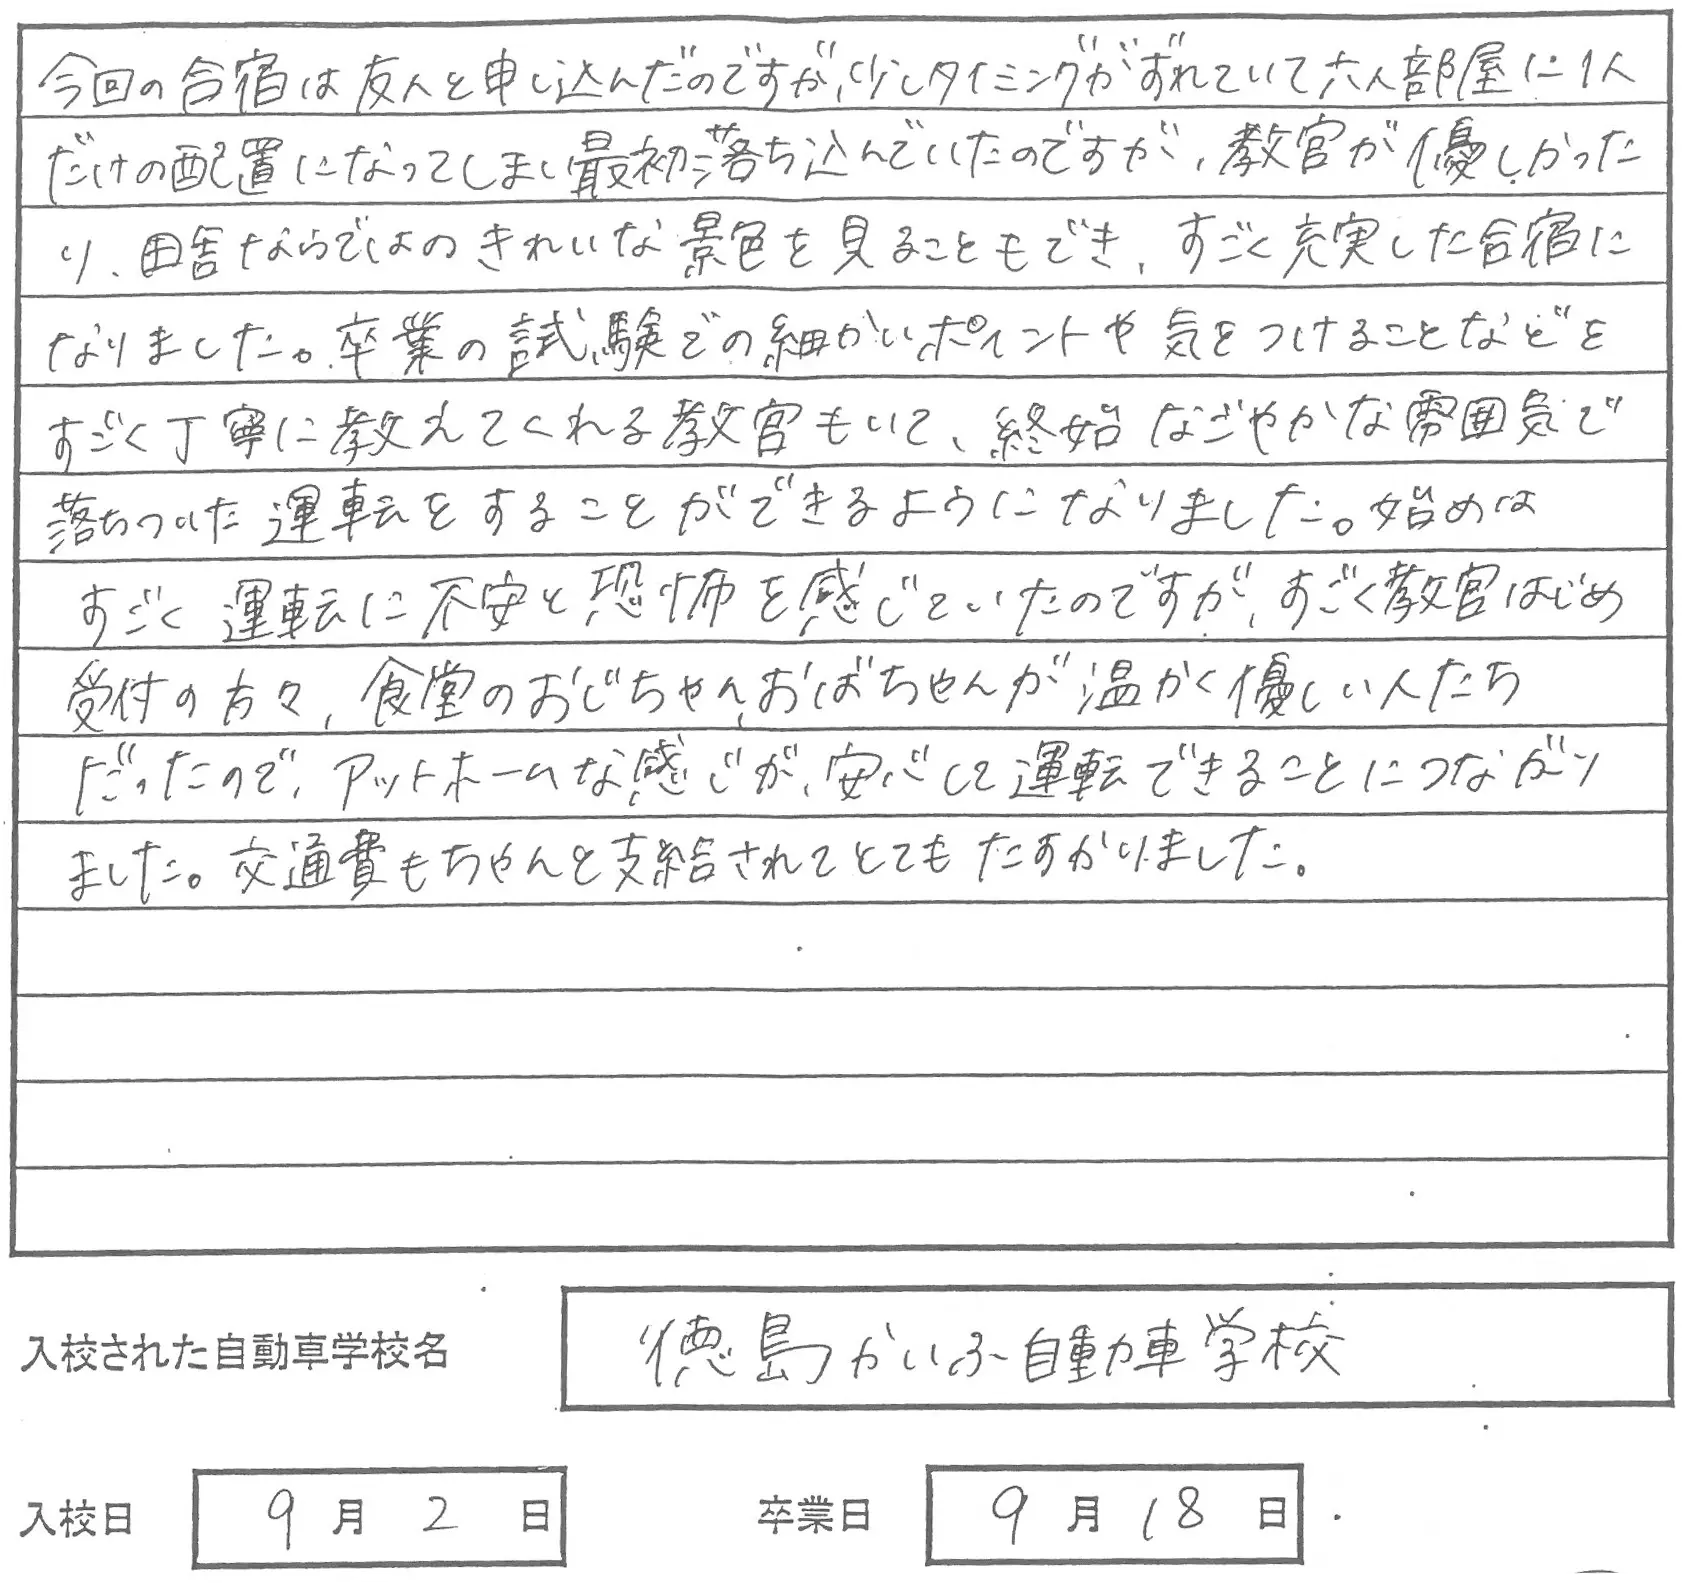 今回の合宿は友人と申し込んだのですが、少しタイミングがずれていて六人部屋に1人
だけの配置になってしまい最初落ち込んでいたのですが、教官が優しかった
り、田舎ならではのきれいな景色を見ることもでき、すごく充実した合宿に
なりました。卒業の試験での細かいポイントや気をつけることなどを
すごく丁寧に教えてくれる教官もいて、終始なごやかな雰囲気で
落ちついた運転をすることができるようになりました。始めは
すごく運転に不安と恐怖を感じていたのですが、すごく教官はじめ
受付の方々、食堂のおじちゃん、おばちゃんが温かく優しい人たち
だったので、アットホームな感じが、安心して運転できることにつながり
ました。交通費もちゃんと支給されてとてもたすかりました。
入校された自動車学校名 徳島かいふ自動車学校
入校日 9月2日 卒業日 9月18日